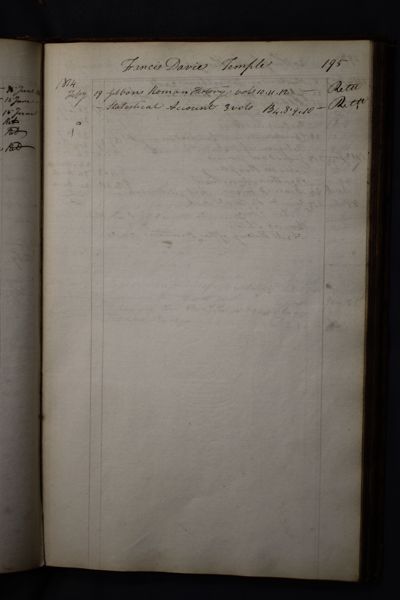 Francis Davie Temple 195
1814
Feby 19 Gibbons Roman History vols 10.11.12 — Retd
- Statistical Account 3 vols B4.8.9.10 — Retd
24 June
15 June
18 June
Ret
Retd
Retd